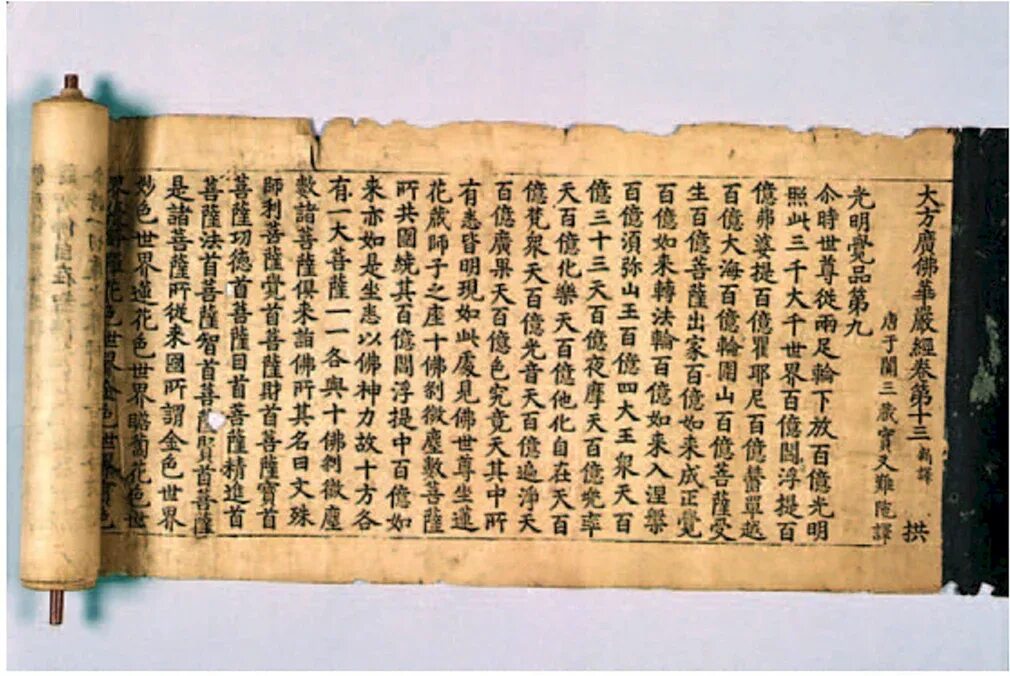 大方廣佛華嚴經卷第十三 新譯 拱
唐于闐三藏實叉難陁譯
光明覺品第九
尒時世尊從兩足輪下放百億光明
照此三千大千世界百億閻浮提百
億弗婆提百億瞿耶尼百億欝單越
百億大海百億輪圍山百億菩薩受
生百億菩薩出家百億如來成正覺
百億如來轉法輪百億如來入涅槃
百億須弥山王百億四大王衆天百
億三十三天百億夜摩天百億兜率
天百億化樂天百億他化自在天百
億梵衆天百億光音天百億遍淨天
百億廣果天百億色究竟天其中所
有悉皆明現如此處見佛世尊坐蓮
花藏師子之座十佛刹微塵數菩薩
所共圍繞其百億閻浮提中百億如
來亦如是坐悉以佛神力故十方各
有一大菩薩一一各與十佛刹微塵
數諸菩薩俱來詣佛所其名曰文殊
師利菩薩覺首菩薩財首菩薩寶首
菩薩功德首菩薩目首菩薩精進首
菩薩法首菩薩智首菩薩賢首菩薩
是諸菩薩所從來國所謂金色世界
妙色世界蓮花色世界薝蔔花色世
羅花色世界金色世界寶色